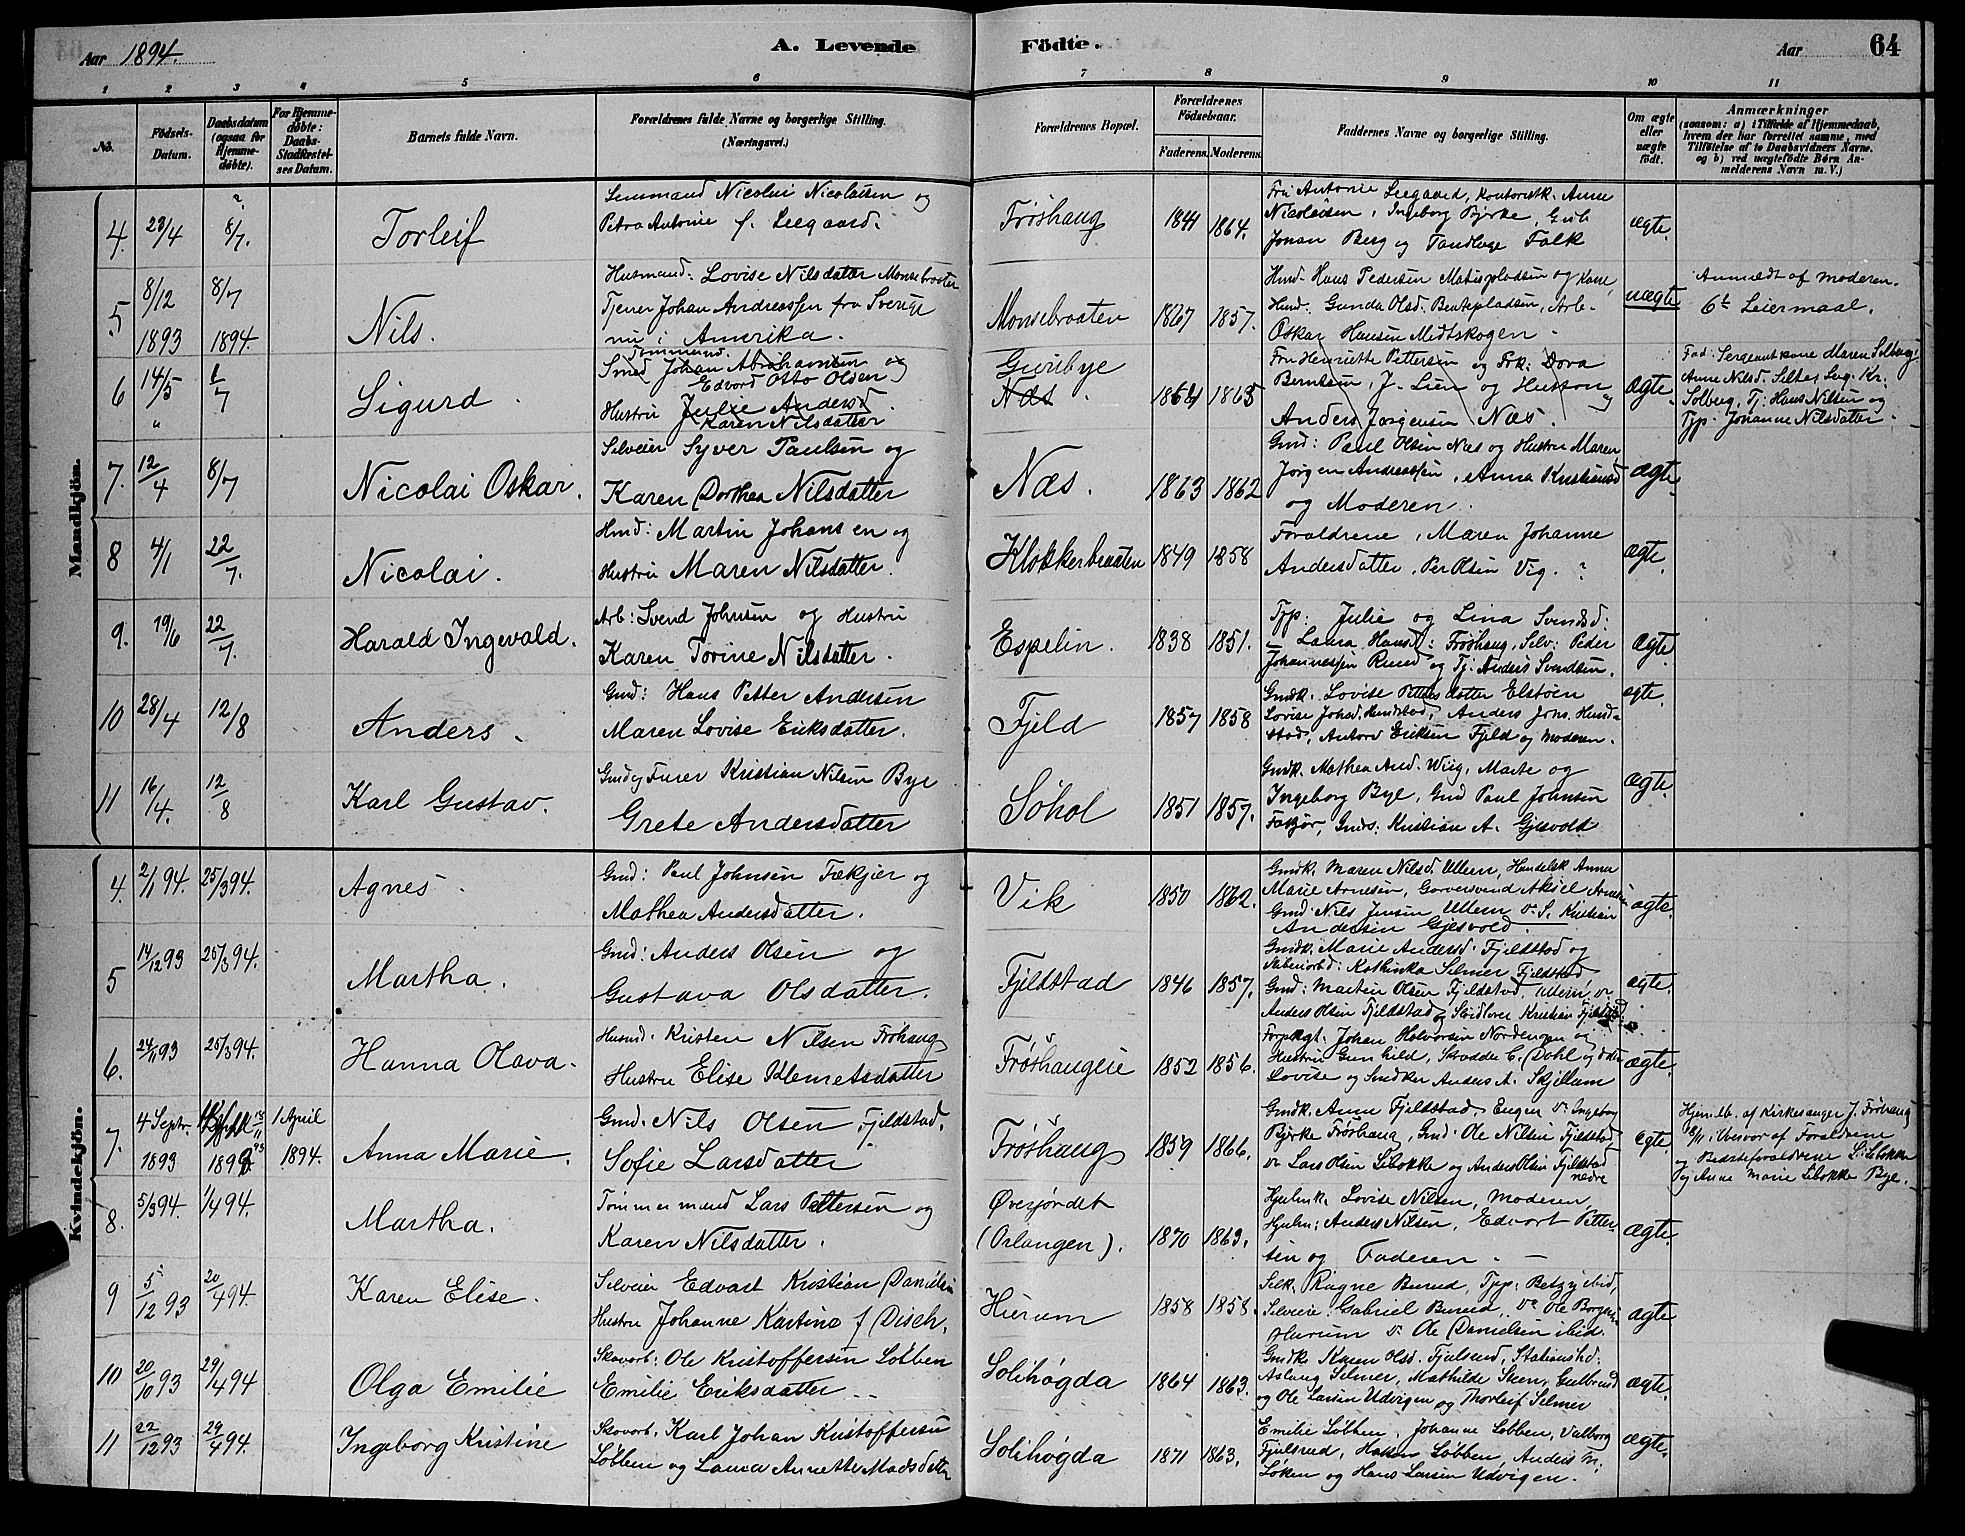 Aar 1894.
A. Levende Födte.
Aar 64
1 2 3 4 5 6 7 8 9 10 11
No.
Födsels-Datum.
Daabsdatum (ogsaa for Hjemme-døbte).
For Hjemme-døbte: Daabs-Stadfæstel-ses Datum.
Barnets fulde Navn.
Forældrenes fulde Navne og borgerlige Stilling.
(Næringsvei.)
Forældrenes Bopæl.
Forældrenes Födselsaar.
Faderens. Moderens.
Faddernes Navne og borgerlige Stilling.
Om ægte eller uægte født.
Anmærkninger
(saasom: a) i Tilfælde af Hjemmedaab,
hvem der har forrettet samme, med
Tilføielse af to Daabsvidners Navne,
og b) ved uægtefødte Børn An-
melderens Navn m. V.)
Mandkjön.
4. 23/4 8/7. Torleif
Semmand Nicolai Nicolaisen og
Petra Antonie f. Leegaard.
Frøshaug 1844 1864.
Fru Antonie Leegaard, Kontoristk. Anne
Nicolaisen, Ingeborg Bjerke, Gub.
Johan Berg og Tandlæge Falk
ægte.
5 8/12 1893 8/7 1894. Nils.
Husmand: Lovise Nilsdatter Monsebraaten
Tjener Johan Andreassen fra Sverige
nu i Amerika.
Monsebraaten 1867 1857.
Husd. Hans Pedersen Matispladsen og Kone,
Husd. Gunda Olsd. Benkepladsen, Arb.
Oskar Hansen Medtskogen
uægte
Anmeldt af moderen.
6t Leiermaal.
6 14/5 1/7 Sigurd.
Tømmand.
Smed Johan Abrahamsen og
Edvard Otto Olsen
Hustru Julie Andersd.
Karen Nilsdatter
Guribye
Næs. 1864 1865
Fru Henriette Pettersen og Frk: Dora
Berntsen, J. Lien og Husson og
Anders Jørgensen Næs.
ægte
Fad: Sergeantkone Maren Solberg
Anne Nilsd. Selte, Sergt. Kr.
Solberg, Tj: Hans Nilsen og
Tjp. Johanne Nilsdatter.
7. 12/4 8/7 Nicolai Oskar.
Selveier Syver Paulsen og
Karen Dorthea Nilsdatter
Næs. 1863 1862
Gmd: Paul Olsen Næs og Hustru Maren,
Jørgen Andreassen, Anna Kristiansd
og Moderen.
ægte.
8 4/1 22/7. Nicolai.
Hmd: Martin Johansen og
Hustru Maren Nilsdatter.
Klokkerbraaten 1849 1858
Forældrene, Maren Johanne
Andersdatter, Per Olsen Vig.
ægte.
9. 19/6 22/7. Harald Ingevald.
Arb: Svend Johnsen og Hustru
Karen Torine Nilsdatter.
Espelin. 1838 1851.
Tjp: Julie og Lina Svendsd:
Laura Hansd: Frøshaug, Selv: Peder
Johannessen Rud og Tj: Anders Svendsen.
ægte.
10 28/4 12/8 Anders.
Gmd: Hans Petter Andersen
Maren Lovise Eriksdatter.
Fjeld 1857 1858
Gmdk. Lovise Pettersdatter Elstøen
Lovise Johsd. Hundstad, Anders Johs. Hund-
stad, Anton Eriksen Fjeld og Moderen.
ægte.
11 16/4. 12/8 Karl Gustav.
Gmd og Furer Kristian Nilsen Bye
Grete Andersdatter
Søhol 1851 1857.
Gmdk. Mathea And. Wiig, Marte og
Ingeborg Bye, Gmd Paul Johnsen
Fækjær, Gmds: Kristian A. Gjesvold
ægte.
Kvindekjön.
4. 2/1 94. 25/3 94. Agnes.
Gmd: Paul Johnsen Fækjer og
Mathea Andersdatter.
Vik 1850 1862.
Gmdk. Maren Nilsd. Ullern, Handelsk Anna
Marie Arnesen, Garversvend Aksel Arnesen
Gmd: Nils Jensen Ullern o. S. Kristian
Andersen Gjesvold.
ægte.
5 14/12 93 25/3 94. Martha.
Gmd: Anders Olsen og
Gustava Olsdatter.
Fjeldstad 1846 1857.
Gmdk: Marie Andersd. Fjeldstad og
Kathinka Selmer Fjeldstad
Gmd: Martin Olsen Fjeldstad, Ullern,
Anders Olsen Fjeldstad og Kristian Fjeldstad
ægte.
6. 24/11 93 25/3 94. Hanna Olava.
Husmd. Kristen Nilsen Frøhaug
Hustru Elise Klemetsdatter
Frøshaugeie 1852 1856.
Forpagt. Johan Halvorsen Nordengen og
Hustru Gunhild, Skrædder C. Dahl og datter
Lovise og Smdker Anders A. Skjellum
ægte.
7. 4 Septr. 1893 1 April 1894. Anna Marie.
Gmd. Nils Olsen Fjeldstad.
Sofie Larsdatter
Frøshaug 1859 1866.
Gmdk. Anne Fjeldstad, Eugen o. Ingeborg
Bjerke Frøshaug, Gmd: Ole Nilsen Fjeldstad
o. Lars Olsen Libokke og Anders Olsen Fjeldstad
nedre
ægte.
Hjemdb. af Kirkesanger J. Frøhaug
i Nærvær af Forældrene
og Bedsteforældrene L. Libokke
og Anne Marie Libokke Bye.
8. 5/3 94. 1/4 94. Martha.
Tømmermand Lars Pettersen og
Karen Nilsdatter.
Øverjordet
(Orlangen). 1870 1863.
Hjulmk. Lovise Nilsen, Moderen,
Hjulm: Anders Nilsen, Edvart Petter-
sen og Faderen.
ægte.
9 5/12 93 20/4 94. Karen Elise.
Selveier Edvart Kristian Danielsen
Hustru Johanne Kastine f Disch.
Hurum 1858 1858.
Selk. Ragne Burud, Tjp: Betzy ibid,
Selveier Gabriel Burud, o. Ole Borgersen
Hurum o. Ole Danielsen ibid.
ægte
10 20/10 93 29/4 94 Olga Emilie
Skovarb: Ole Kristoffersen Løbben
Emilie Eriksdatter
Solihøgda 1864 1863.
Gmdk. Karen Olsd. Fjulsrud, Stationshd:
Aslaug Selmer, Mathilde Sken, Gulbrand
og Ole Larsen Udvigen og Thorleif Selmer
ægte.
11 22/12 93 29/4 94. Ingeborg Kristine
Skovarb. Karl Johan Kristoffersen
Løbben og Laura Annette Madsdatter
Solihøgda 1871 1863.
Emilie Løbben, Johanne Løbben, Valborg
Fjulsrud, Løbben, Anders M.
Løken og Hans Larsen Udvigen.
ægte.